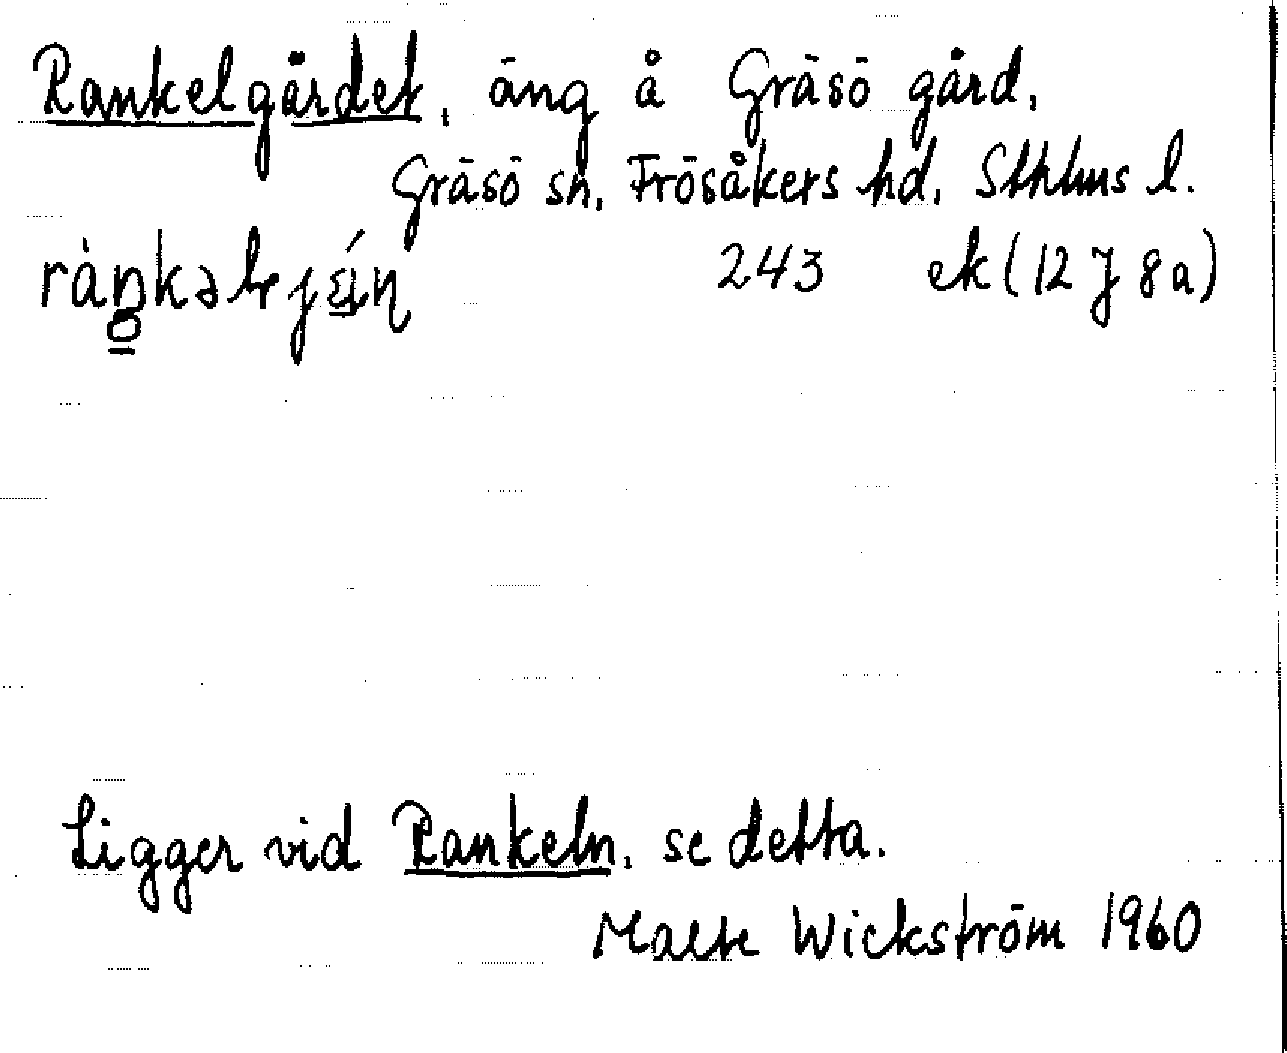 Rankelgärdet, äng å Gräsö gård,
Gräsö sn, Frösåkers hd, Sthlms l.
243 ek (12 J 8 a)
Ligger vid Rankeln, se detta.
Malte Wickström 1960